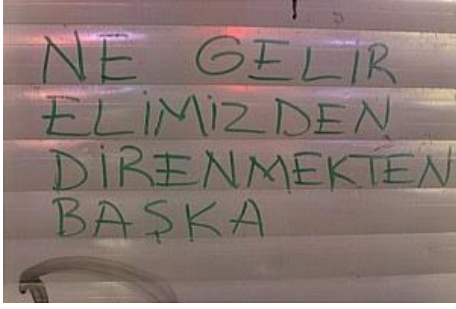 NE GELİR
ELİMİZDEN
DİRENMEKTEN
BAŞKA